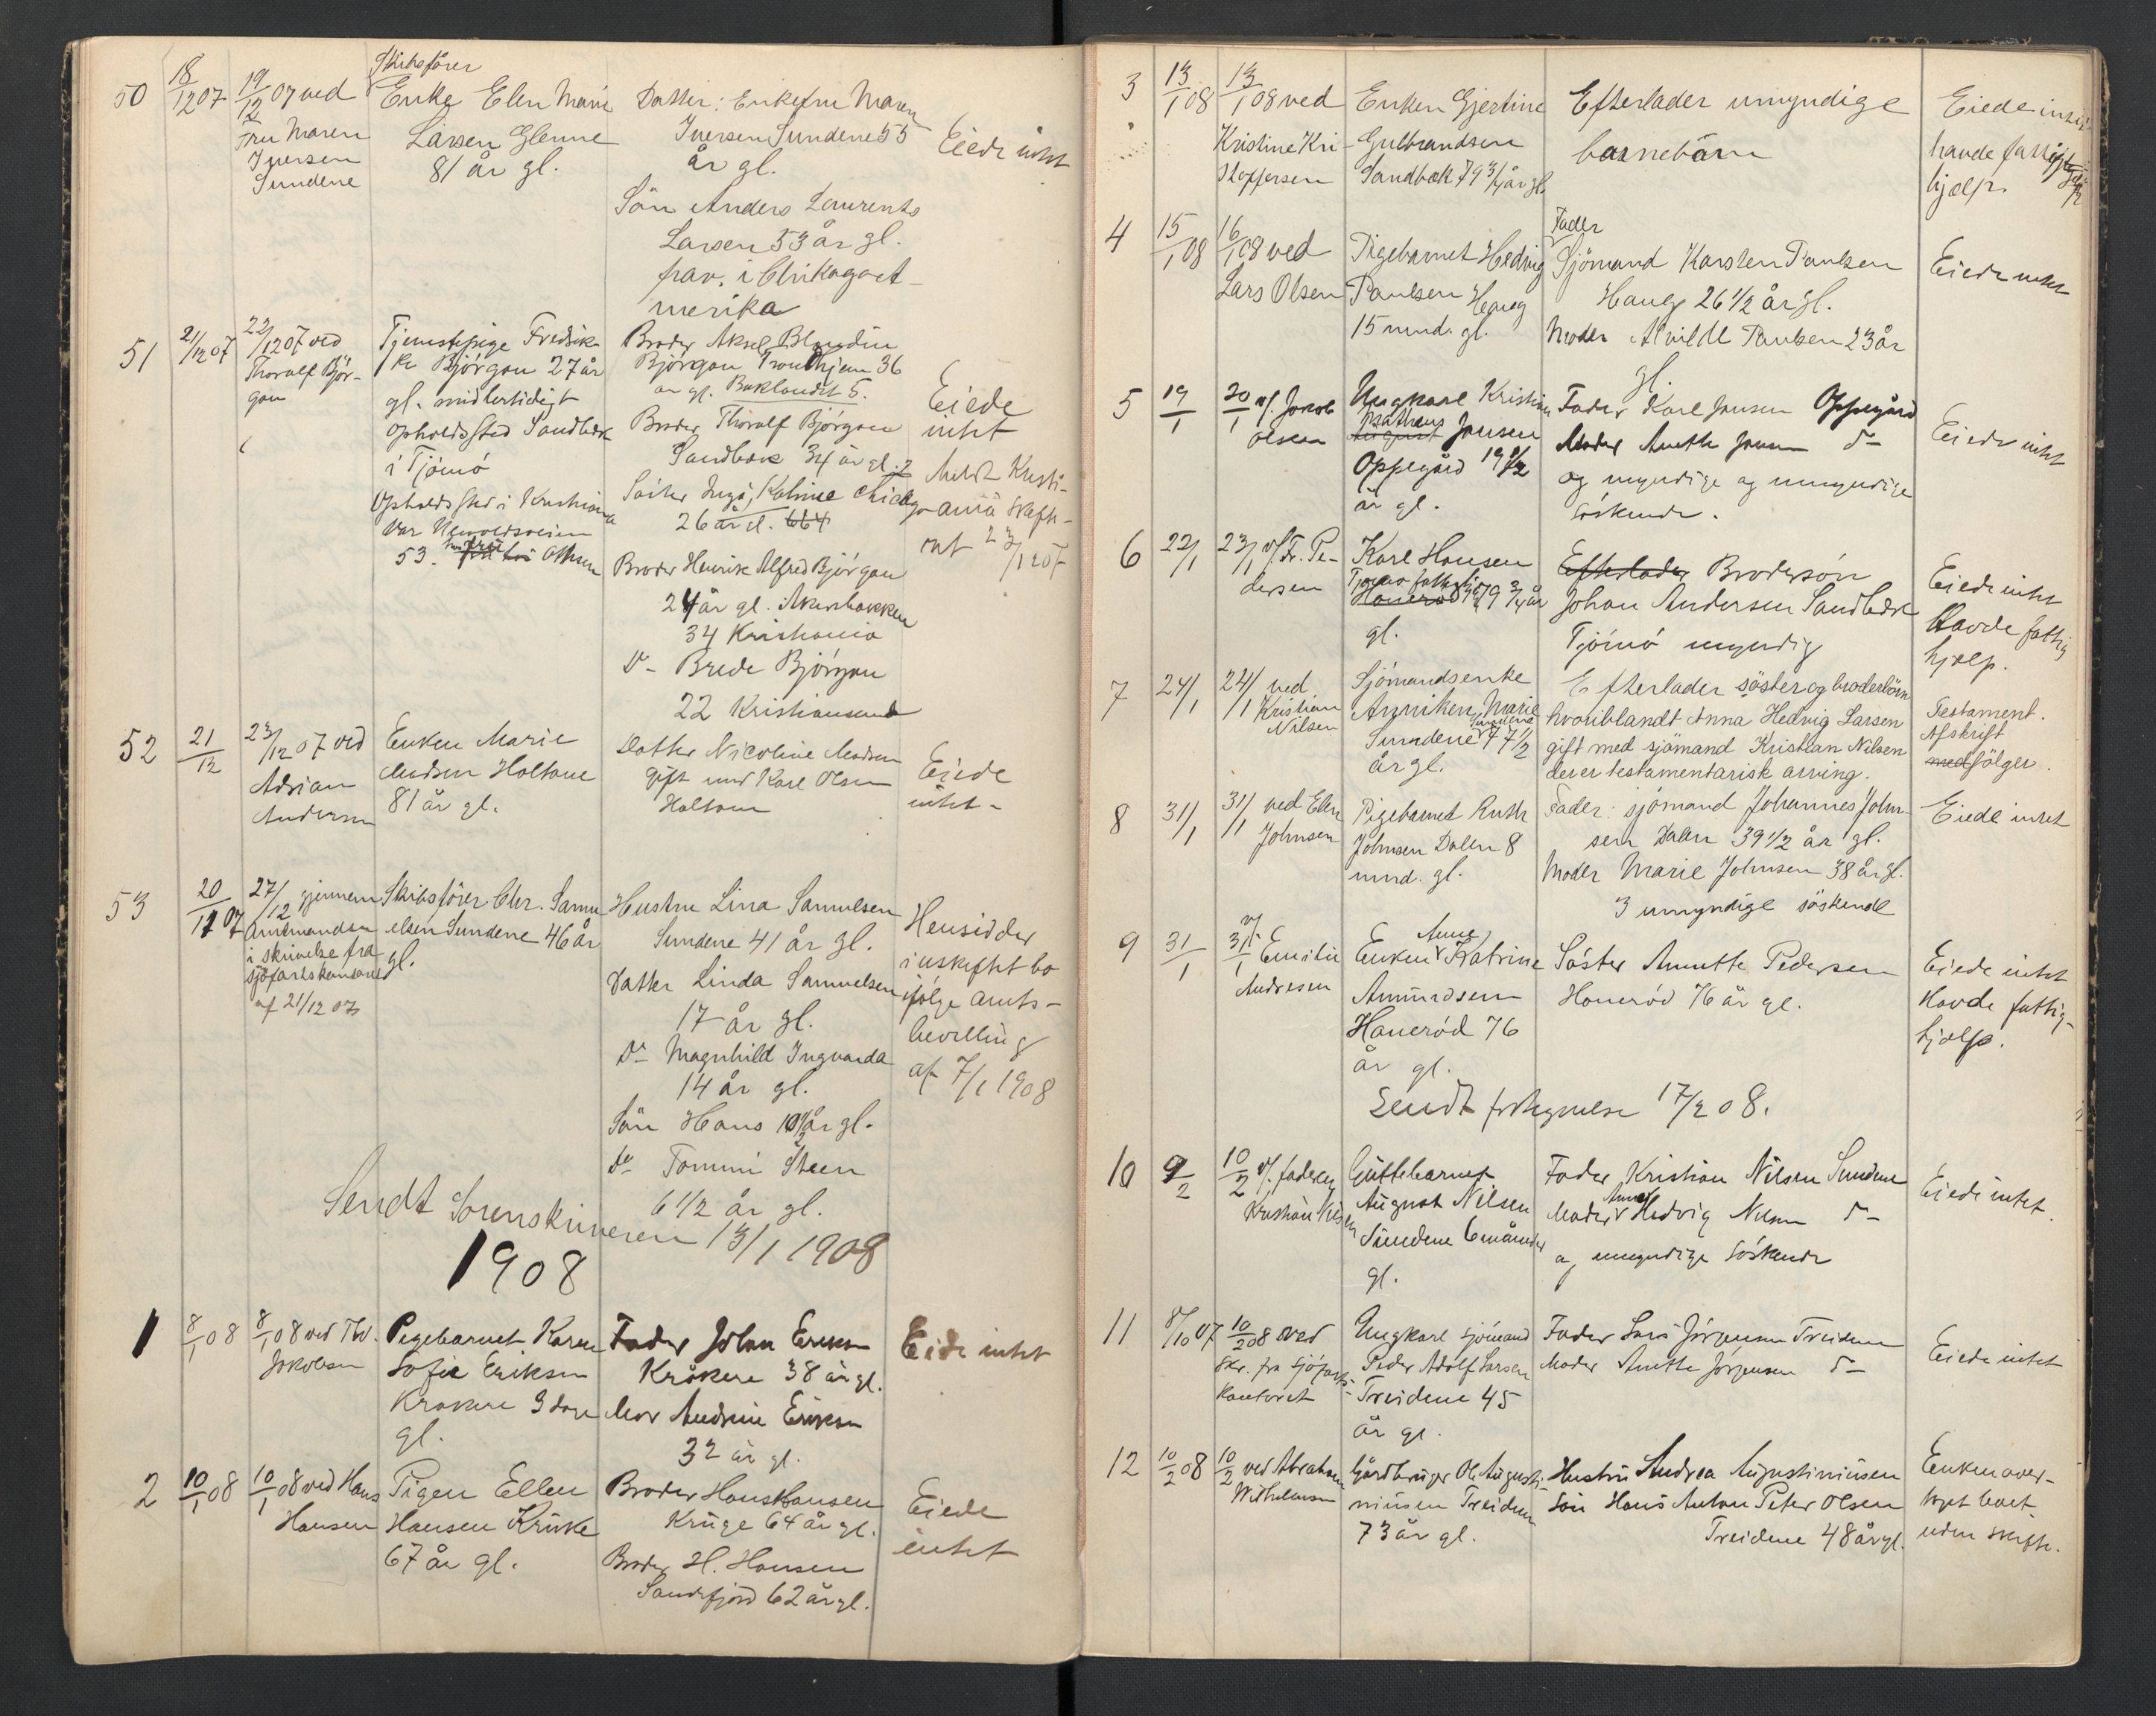 50
18/12 07
19/12 07 ved
Fru Maren
Iversen
Sundene
Skibsfører
Enke Elen Marie
Larsen Glenne
81 år gl.
Datter: Enkefru Maren
Iversen Sundene 55
år gl.
Sön Anders Laurents
Larsen 53 år gl.
frav. i Chikago A-
merika
Eiede intet
51
21/12 07
22/12 07 ved
Thoralf Björ-
gan
Tjenestepige Fredrik-
ke Björgan 27 år
gl. midlertidigt
opholdssted Sandbæk
i Tjömö
Opholdssted i Kristiania
var
53. Olsen
Broder Aksel
Björgan Trondhjem 36
år gl. Baklandet 5.
Broder Thoralf Björgan
Sandbæk 34 år gl.
Söster Inga Katrine Chicago
26 år gl.
Broder Henrik Alfred Björgan
24 år gl. Akersbakken
34 Kristiania
Do Brede Björgan
22 Kristiansand
Eiede
intet
Meldt Kristi-
ania skifte-
ret 23/12 07
52
21/12
23/12 07 ved
Adrian
Andersen
Enken Marie
Madsen Holtane
81 år gl.
Datter Nicoline Madsen
gift med Karl Olsen
Holtane
Eiede
intet-
53
20/11 07
27/12 gjennem
Amtmanden
i skrivelse fra
sjöfartskontoret
af 21/12 07
Skibsförer Chr. Samu-
elsen Sundene 46 år
gl.
Hustru Lina Samuelsen
Sundene 41 år gl.
Datter Linda Samuelsen
17 år gl.
Do Magnhild Ingvarda
14 år gl.
Sön Hans 10 1/2 år gl.
Do Tommi Steen
6 1/2 år gl.
Hensidder
i uskiftet bo
ifölge amts-
bevilling
af 7/1 1908
Sendt Sorenskriveren 13/1 1908
1908
1
8/1 08
8/1 08 ved Th.
Jakobsen
Pigebarnet Karen
Sofie Eriksen
Kråkere 9 dage
gl.
Fader Johan Eriksen
Kråkere 38 år gl.
Mor Andrine Eriksen
32 år gl.
Eiede intet
2
10/1 08
10/1 08 ved Hans
Hansen
Pigen Ellen
Hansen Krüke
67 år gl.
Broder Hans Hansen
Krüge 64 år gl.
Broder H. Hansen
Sandefjord 62 år gl.
Eiede
intet
3
13/1 08
13/1 08 ved
Kristine Kri-
stoffersen
Enken Gjertine
Gulbrandsen
Sandbæk 79 3/4 år gl.
Efterlader umyndige
barnebörn
Eiede intet
havde fattig-
hjælp.
4
15/1 08
16/1 08 ved
Lars Olsen
Pigebarnet Hedvig
Paulsen Haug
15 mnd. gl.
Fader
Sjömand Karsten Paulsen
Haug 26 1/2 år gl.
Moder Alvilde Paulsen 23 år
gl.
Eiede intet
5
19/1
20/1 v/ Jakob
Olsen
Ungkarl Kristian
Mathias
August Jansen
Oppegård 19 1/2
år gl.
Fader Karl Jansen Oppegård
Moder Anette Jansen Do
og myndige og umyndige
söskende.
Eiede intet
6
22/1
23/1 v/ Fr. Pe-
dersen
Karl Hansen
Honerød 79 3/4 år
gl.
Efterlader Brodersön
Johan Andersen Sandbæk
Tjömö myndig
Eiede intet
Havde fattig
hjælp.
7
24/1
24/1 ved
Kristian
Nilsen
Sjömandsenke
Anniken Marie
Sundene
Sundene 77 1/2
år gl.
Efterlader söster og broderbörn
hvoriblandt Anna Hedvig Larsen
gift med sjömand Kristian Nilsen
der er testamentarisk arving.
Testament.
Afskrift
medfölger.
8
31/1
31/1 ved Elen
Johnsen
Pigebarnet Ruth
Johnsen Dalen 8
mnd. gl.
Fader: sjömand Johannes John-
sen Dalen 39 1/2 år gl.
Moder Marie Johnsen 38 år gl.
3 umyndige söskende
Eiede intet
9
31/1
31/1 v/ Emilie
Andresen
Anne
Enken Katrine
Amundsen
Honeröd 76
år gl.
Söster Annette Pedersen
Honeröd 76 år gl.
Eiede intet
Havde fattig-
hjælp.
Sendt fortegnelse 17/2 08.
10
9/2
10/2 v/ faderen
Kristian Nilsen
Guttebarnet
August Nilsen
Sundene 6 måneder
gl.
Fader Kristian Nilsen Sundene
Anna
Moder Hedvig Nilsen Do
og umyndige söskende
Eiede intet.
11
8/10 07
10/2 08 ved
skr. fra sjöfarts-
kontoret
Ungkarl sjömand
Peder Adolf Larsen
Treidene 45
år gl.
Fader Lars Jörgensen Treidene
Moder Anette Jörgensen Do
Eiede intet
12
10/2 08
10/2 ved Abraham
Wilhelmsen
Gårdbruger Ole Augusti-
niusen Treidene
73 år gl.
Hustru Andrea Augustiniusen
Sön Hans Anton Peter Olsen
Treidene 48 år gl.
Enken over-
taget boet
uden skifte.